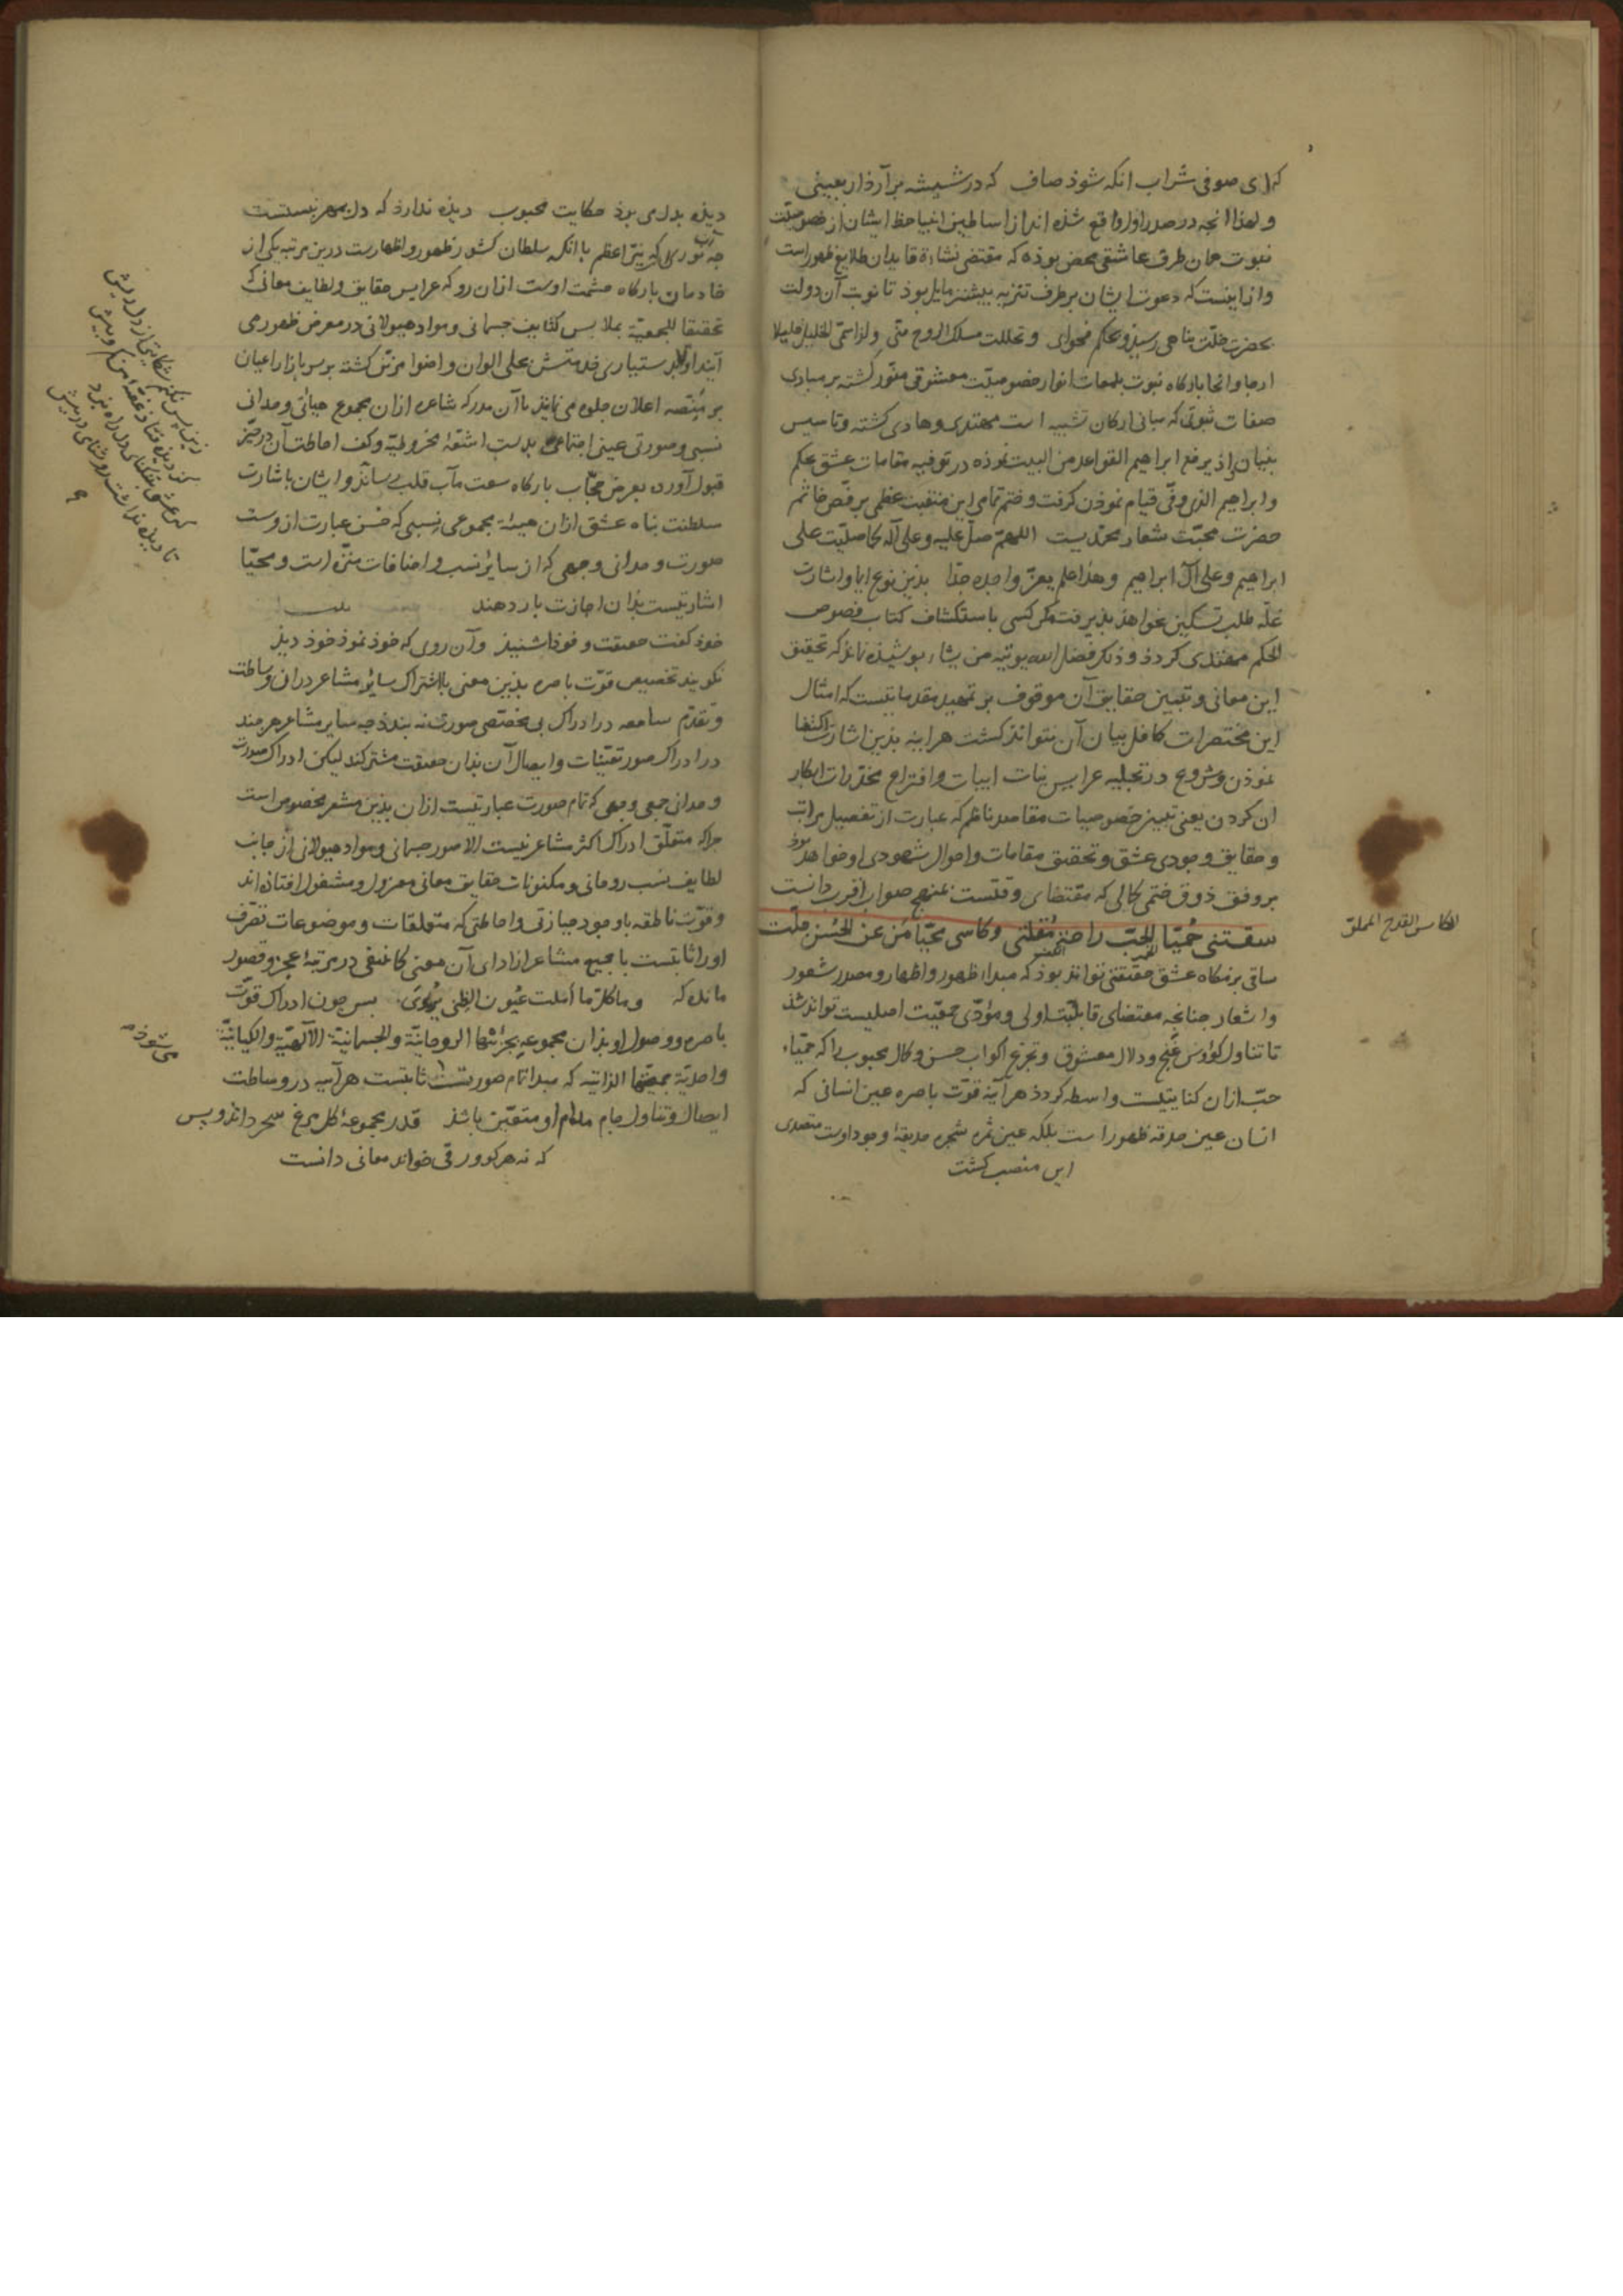 که ای صوفی شراب انکه شوذ صاف که در شیشه برآرذ اربعینی
و لهذا انجه در صدر اول واقع شذه اند از اساطین انبیا حظ ایشان از خصوصیت
نبوت همان طرف عاشقی محض بوذه که مقتضی نشاءة قایدان طلایع ظهور است
و ازاینست که دعوت ایشان بر طرف تنزیه بیشتر مایل بوذ تا نوبت آن دولت
بحضرت خلّت پناهی رسیذ و بحکم فحوای و تخللت مسلک الروح منّی ولذا سمّی الخلیل خلیلا
ارجا و انحا بارکاه نبوت بلمعات انوار خصوصیت معشوقی منوّر کشته بر مبادی
صفات ثبوتی که مبانی ارکان تشبیه است مهتدی و هادی کشته و تاسیس
بنیان اذ یرفع ابراهیم القواعد من البیت نموذه در توفیه مقامات عشق بحکم
و ابراهیم الذی وفّی قیام نموذن کرفت و ختم تمامی این منقبت عظمی بر فصّ خاتم
حضرت محبّت شعار محمّدیست اللهمّ صلّ علیه و علی آله کما صلیّت علی
ابراهیم و علی آل ابراهیم و هذا علم یعزّ واجده جدّا بذین نوع ایما و اشارت
غلّه طلب تسکین نخواهذ بذیرفت مکر کسی باستکشاف کتاب فصوص
الحکم مهتدی کردذ و ذلک فضل الله یوتیه من یشاء بوشیذه نماند که تحقیق
این معانی و تبیین حقایق آن موقوف بر تمهید مقدماتیست که امثال
این مختصرات کافل بیان آن نتوانذ کشت هراینه بذین اشارت اکتفا
نموذن و شروع در تجلیه عرایس بنات ابیات و افتراع مخدّرات ابکار
ان کردن یعنی تبیین خصوصیات مقاصد ناظم که عبارت از تفصیل مراتب
و حقایق وجودی عشق و تحقیق مقامات و احوال شهودی او خواهد بوذ
بر وفق ذوق ختمی کمالی که مقتضای وقتست بمنهج صواب اقرب دانست
سقتنی حُمیّا الحبّ راحةُ مُقلتی و کاسی محیّا مَن عن الحُسن جلّت
ساقی بزمکاه عشق حقیقتی تواند بوذ که مبداء ظهور و اظهار و مصدر شعور
و اشعار جنانجه مقتضای قابلیّت اولی و مؤدّی جمعیّت اصلیست تواند شذ
تا تناول کؤوس غنج و دلال معشوق و تجرّع اکواب حسن و کمال محبوب را که حمیّاء
حبّ ازان کنایتیست واسطه کردذ هرآینه قوّت باصره عین انسانی که
انسان عین حدقه ظهور است بلکه عین ثمره شجره حدیقهٔ وجود اوست متصدی
این منصب کشت
الکاس القدح المملو
دیذه بدل می برذ حکایت محبوب دیذه ندارذ که دل بمهر نبستست
جه آن نور کل که نیّر اعظم با انکه سلطان کشور ظهور و اظهارست درین مرتبه یکی از
خادمان بارکاه حشمت اوست ازان رو که عرایس حقایق و لطایف معانی که
تحقیقا للجمعیّه بملابس کثایف جسمانی و مواد هیولانی در معرض ظهور می
آیند اولا بدستیاری خدمتش بحلی الوان و اضوا مزیّن کشته بر سر بازار اعیان
بر منصّه اعلان جلوه می نمایند تا آن مدرکه شاعره ازان مجموع هیاتی وحدانی
نسبی و صورتی عینی اجتماعی بدست اشعّهٔ مخروطیّه و کف احاطت آن در حیّز
قبول آورده بعرض حجّاب بارکاه سعت مآب قلب رسانذ و ایشان باشارت
سلطنت پناه عشق ازان هیئة مجموعی نسبی که حسن عبارت ازوست
صورت وحدانی وجهی که از سایر نسب و اضافات منزّه است و محیّا
اشارتیست بذان اجازت بار دهند
خوذ کفت حقیقت و خوذ اشنیذ وآن روی که خوذ نموذ خوذ دیذ
نکویند تخصیص قوّت باصره بذین معنی با اشتراک سایر مشاعر دران وساطت
و تقدّم سامعه در ادراک بی مخصّصی صورت نه بندذ جه سایر مشاعر هرچند
در ادراک صور تعیّنات و ایصال آن بذان حقیقت مشترکند لیکن ادراک صورت
وحدانی جمعی وجهی که تمام صورت عبارتیست ازان بذین مشعر مخصوص است
جراکه متعلّق ادراک اکثر مشاعر نیست الا صور جسمانی و مواد هیولانی از جانب
لطایف نسب روحانی و مکنونات حقایق معانی معزول و مشغول افتاذه اند
و قوّت ناطقه با وجود حیازتی و احاطتی که متعلقات و موضوعات تصّرف
اورا ثابتست با جمیع مشاعر از ادای آن معنی کما ینبغی در مرتبهٔ عجز و قصور
مانده که و ما کلّ ما أملت عُیون الظبی یُروَی بس جون ادراک قوّت
باصره و وصول او بذان مجموعه بجزئیّتها الروحانیّة والجسمانیّة الآلهیّة والکیانیّة
واحدیّة جمعیّتها الذاتیه که مبدا تمام صورتست ثابتست هرآینه در وساطت
ایصال و تناول جام مدام او متعیّن باشذ قدر مجموعهٔ کل مرغ سحر داند و بس
که نه هر کو ورقی خواند معانی دانست
زین پس نکنم شکایتی از دل ریش
کز دیذه فتاذ
تا دیذه نذاشت روشنای در پیش
می شوذ